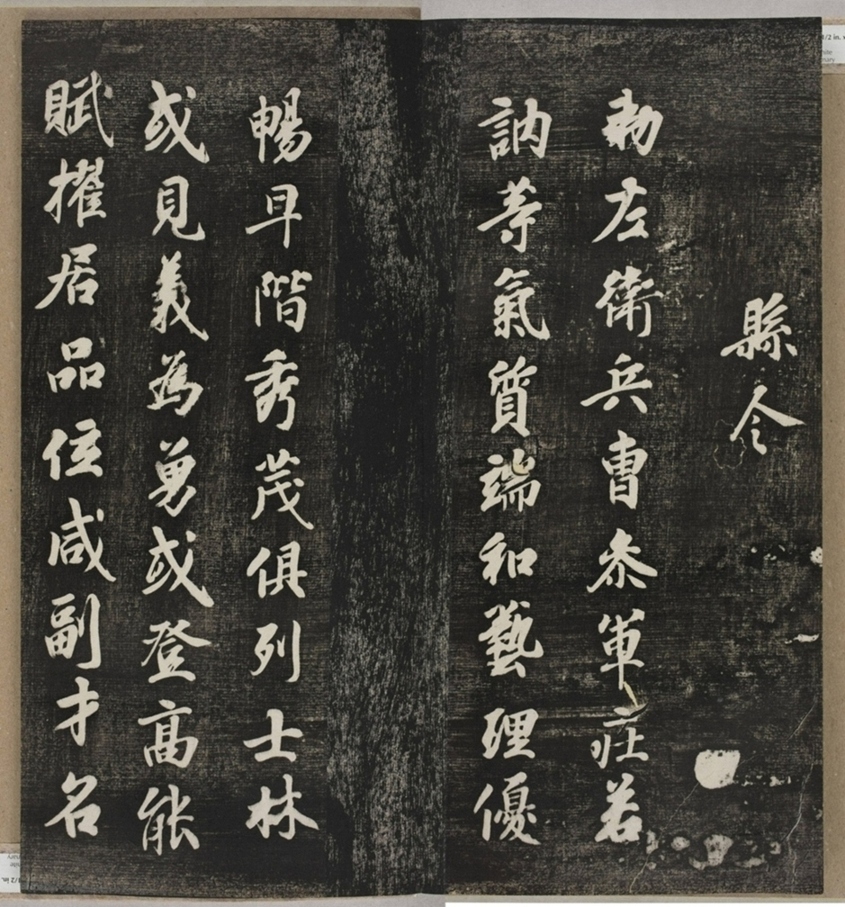 縣令
勑左衛兵曹叅軍莊若
訥等氣質端和藝理優
暢早階秀茂俱列士林
或見義為勇或登高能
賦擢居品位咸副才名